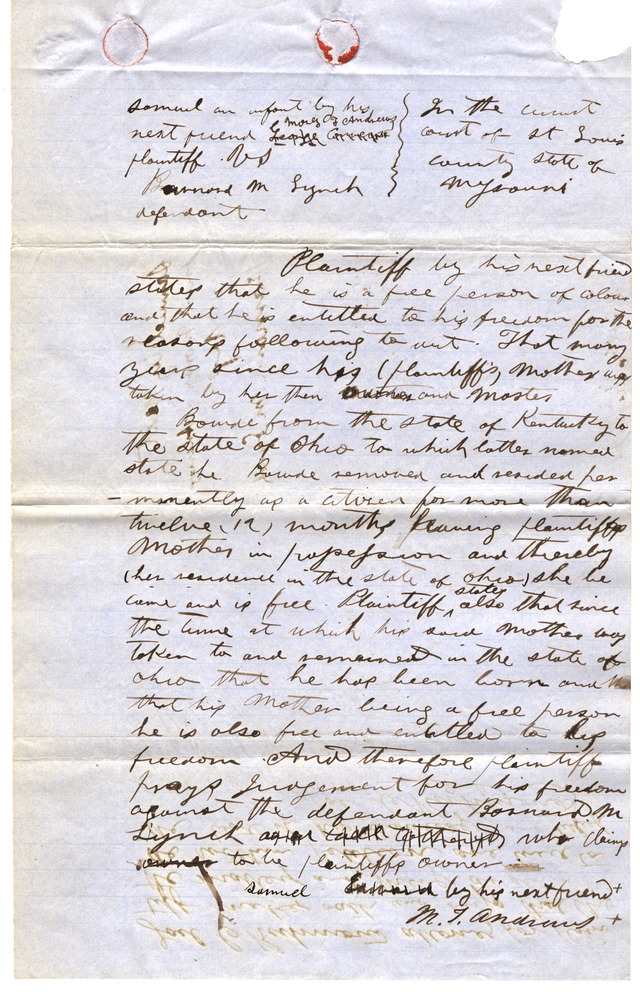 Samuel an infant by his
next friend Moses J Andrews
plaintiff. Vs
Barnard M Lynch
defendant
In the circuit
court of St Louis
county state of
Myssouri
Plaintiff by his next friend
states that he is a free person of colour
and that he is entitled to his freedom for the
reasons following to wit. That many
years since his (plaintiff's) Mother was
taken by her then owner and Master
Boude from the state of Kentucky to
the state of Ohio to which latter named
state he Boude removed and resided per
-manently as a citizen for more than
twelve (12) months having plaintiffs
Mother in possession and thereby
(her residence in the state of Ohio) she be
came and is free. Plaintiff states also that since
the time at which his said Mother was
taken to and remained in the state of
Ohio that he has been born and
that his Mother being a free person
he is also free and entitled to his
freedom. And therefore plaintiff
prays Judgement for his freedom
against the defendant Barnard M
Lynch who claims
to be plaintiffs owner
Samuel by his next friend
M. J. Andrews